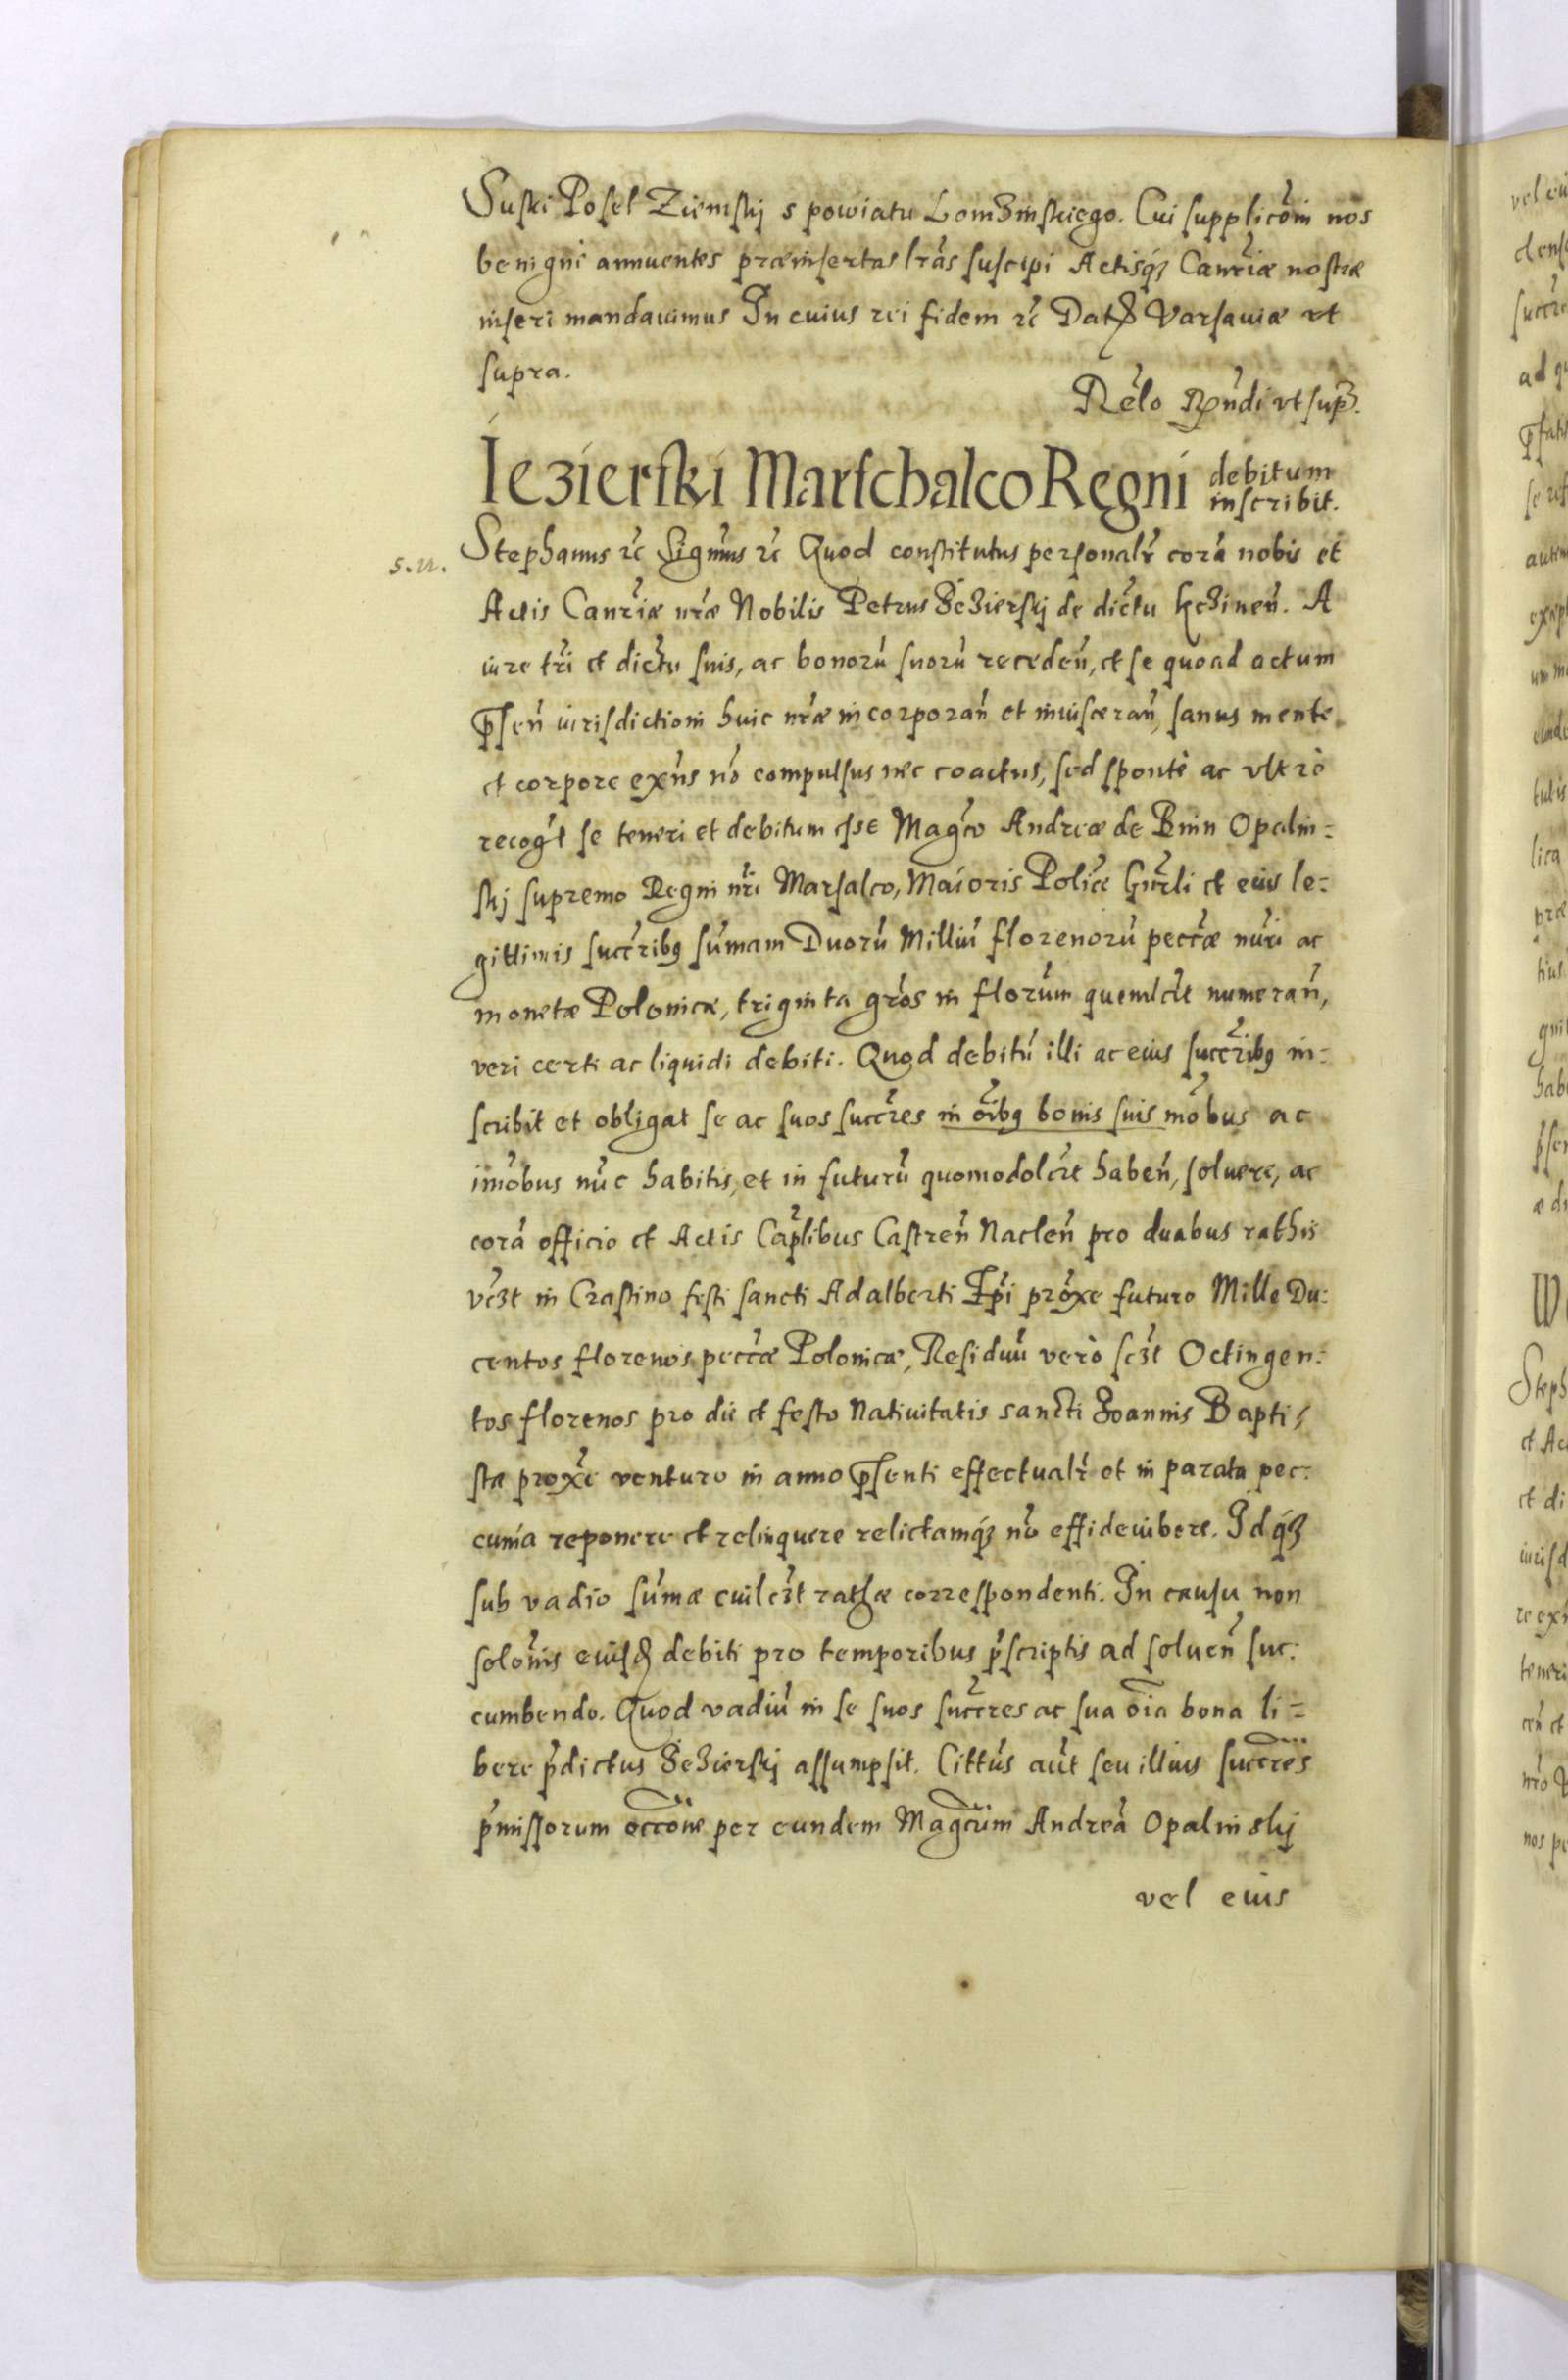 Suski Posel Ziemskj s powiatu Lomzinskiego. Cui suppliconi nos
benigne annuentes præinsertas lras suscipi Actisq₃ Canriæ nostræ
inseri mandauimus In cuius rei fidem ꝛc Dat Varsauiæ vt
supra.
Relo Rndi vt sup.
Iezierski Marschalco Regni debitum
inscribit.
5.n.
Stephanus ꝛc Signmus ꝛc Quod constitutus personalr corā nobis et
Actis Canriæ nræ Nobilis Petrus Iezierskj de dictu Kczinen. A
iure tri et dictu suis, ac bonorū suorū receden, et se quoad actum
p̄sen iurisdictioni huic nræ incorporan et inuisceran, sanus mente
et corpore exns no compulsus nec coactus, sed spontè ac vltrò
recogt se teneri et debitum esse Magco Andreæ de Bnin Opalin=
skj supremo Regni nri Marsalco, Maioris Police Gnrli et eius le=
gittimis succribꝰ sumam Duorū Milliū florenorū peccæ nuri ac
monetæ Polonicæ, triginta gros in florum quemlct numeran,
veri certi ac liquidi debiti. Quod debitū illi ac eius succribꝰ in=
scribit et obligat se ac suos succres in oibꝰ bonis suis mobus ac
imobus nuc habitis, et in futurū quomodolct haben, soluere, ac
corā officio et Actis Caplibus Castren Naclen pro duabus rathis
vczt in Crastino festi sancti Adalberti Epi proxe futuro Mille Du=
centos florenos peccæ Polonicæ, Residuū verò sczt Octingen=
tos florenos pro die et festo Natiuitatis sancti Ioannis Bapti=
stæ proxe venturo in anno p̄senti effectualr et in parata pec=
cunia reponere et relinquere relictamq₃ no effideiubere. Idq₃
sub vadio sumæ cuilczt rathæ correspondenti. In causu non
solonis eiusd debiti pro temporibus p̄scriptis ad soluen suc=
cumbendo. Quod vadiū in se suos succres ac sua oia bona li=
bere p̄dictus Iezierskj assumpsit. Cittus aut seu illius succres
p̄missorum occone per eundem Magcum Andreā Opalinskj
vel eius